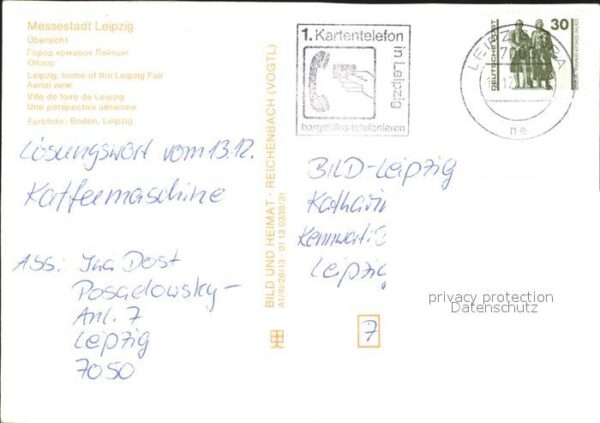 Messestadt Leipzig
Übersicht
Город ярмарок Лейпциг
Обзор
Leipzig, home of the Leipzig Fair
Aerial view
Ville de foire de Leipzig
Une perspective aérienne
Farbfoto: Boden, Leipzig
Lösungswort vom 13.12.
Kaffeemaschine
Ass: Ina Dost
Posadowsky-
Anl. 7
Leipzig
7050
BILD UND HEIMAT · REICHENBACH (VOGTL)
A1/III/26/13 · 01 13 0338/31
1. Kartentelefon
in Leipzig
bargeldlos telefonieren
LEIPZ
ne
DEUTSCHE POST
30
BILD-Leipzig
Kathari
Kennwort:
Leipzig
7
privacy protection
Datenschutz